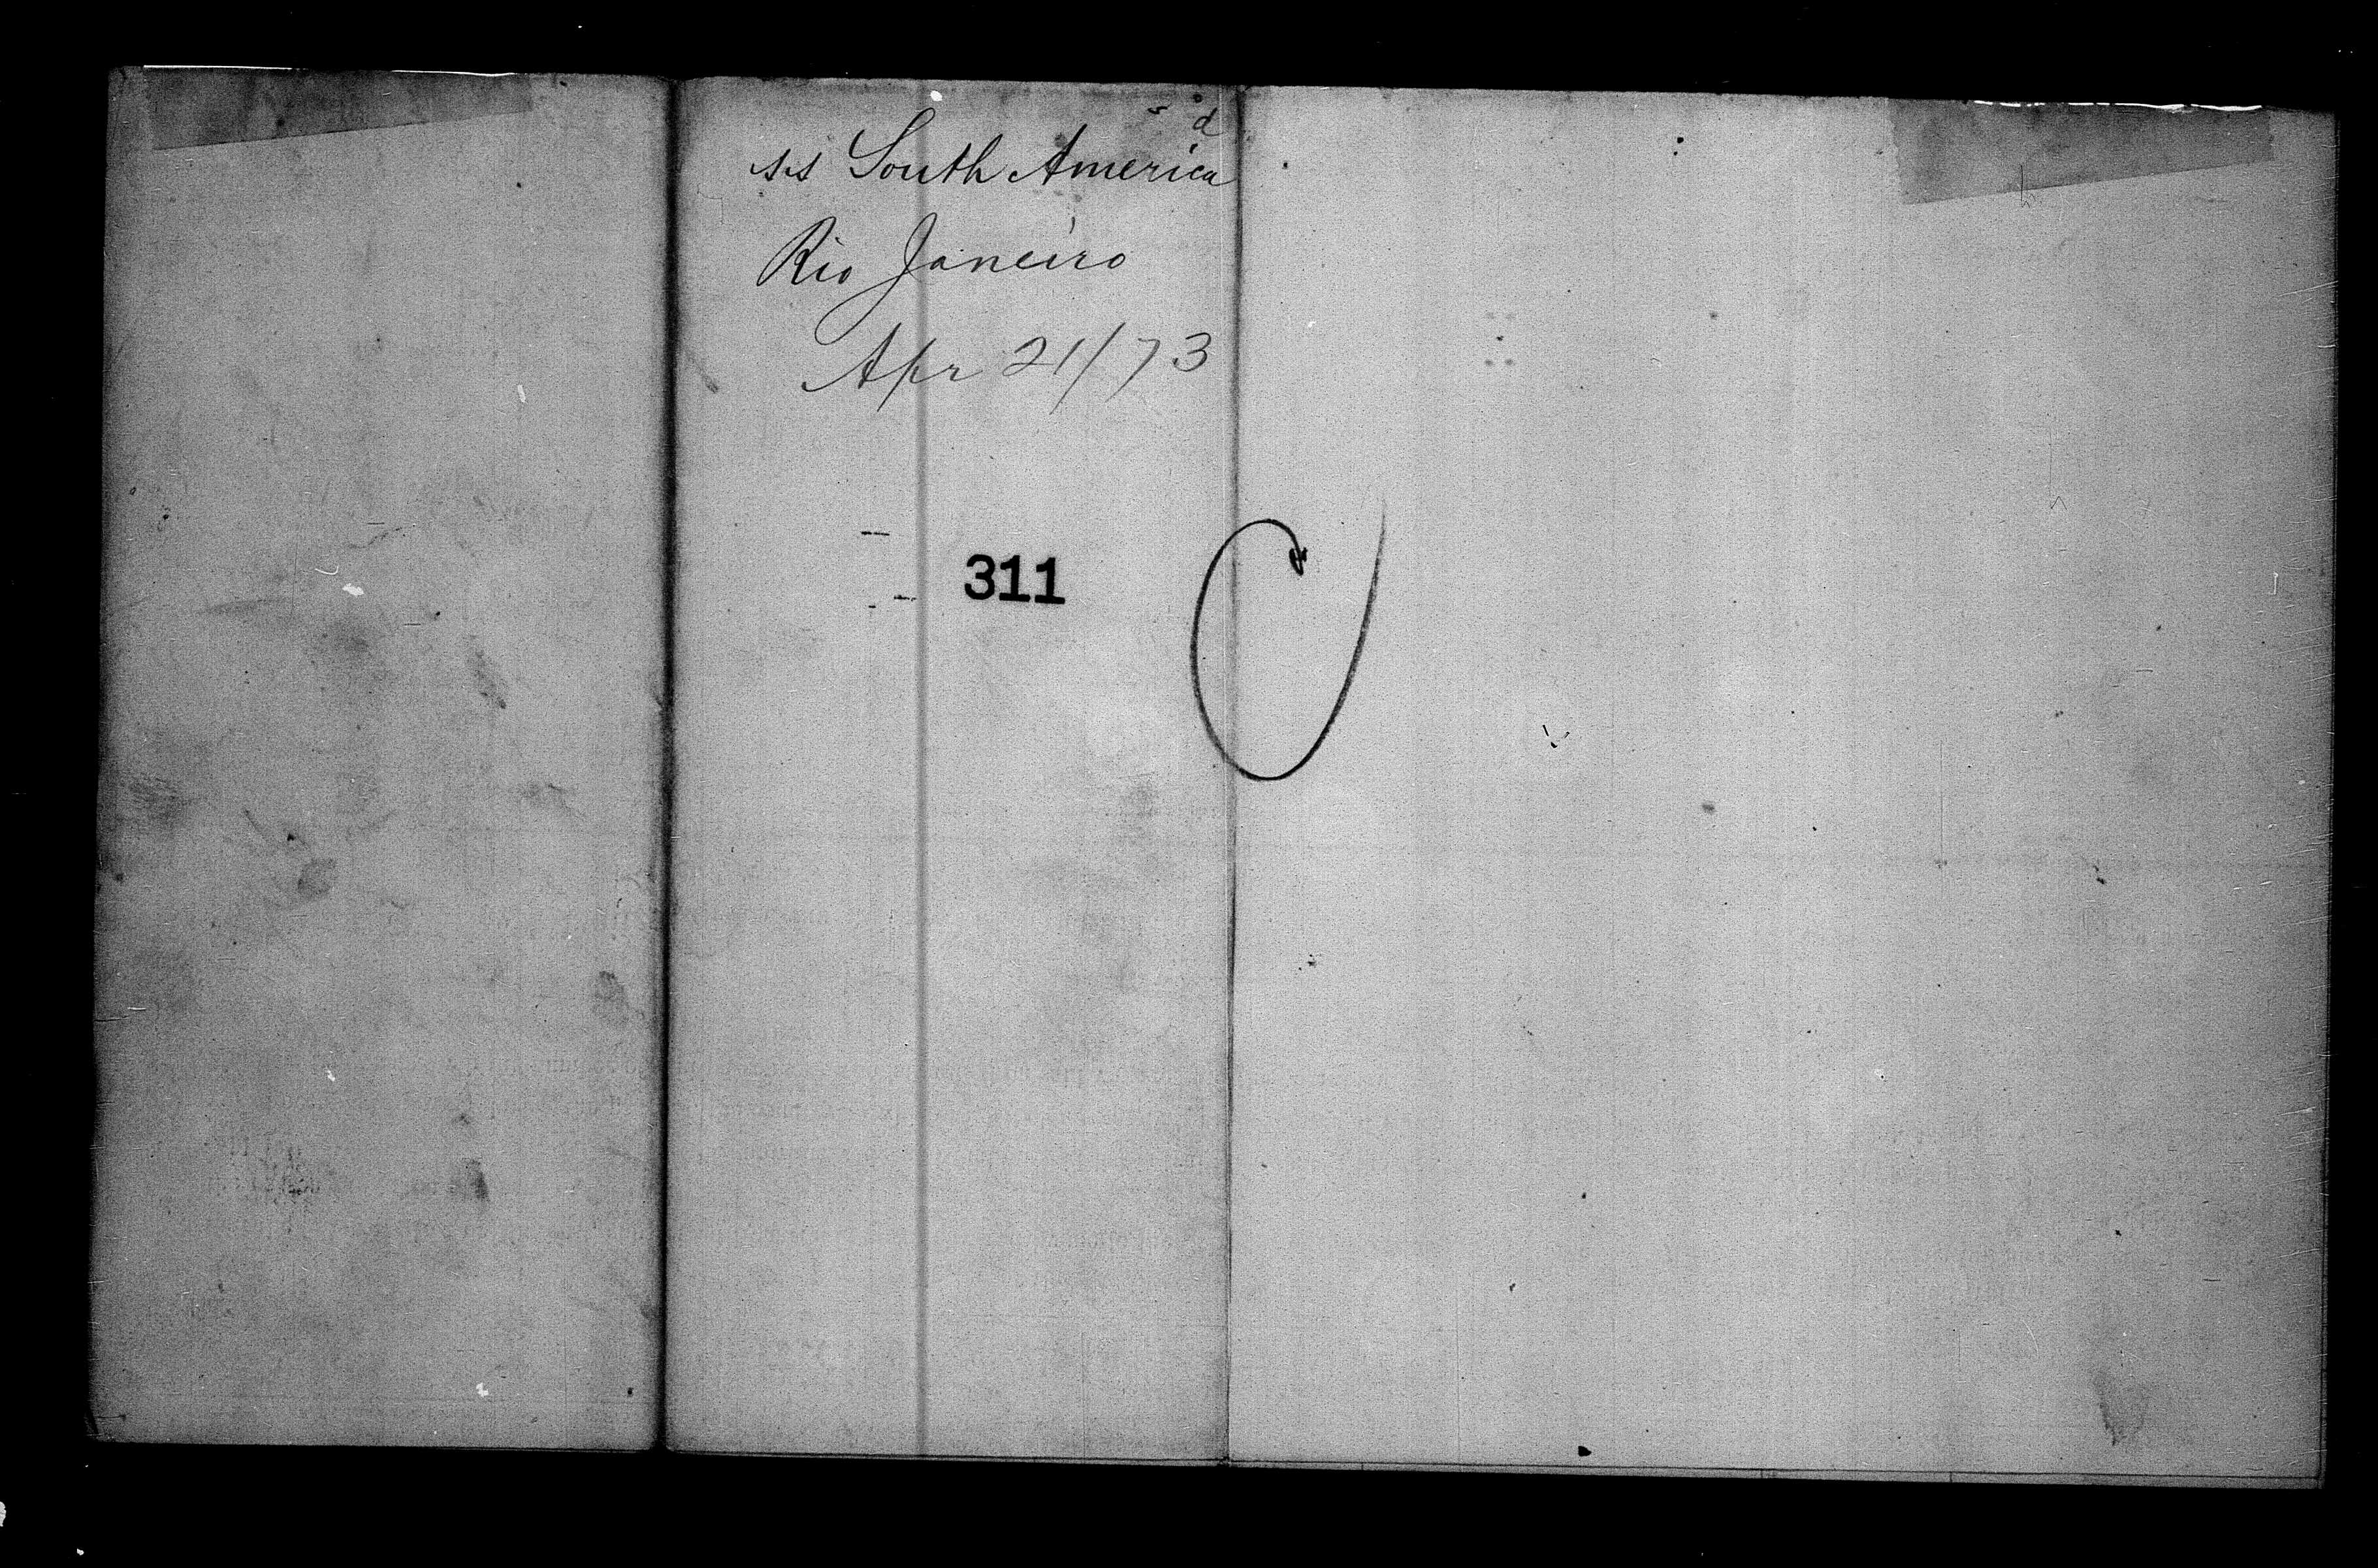 ss South America
Rio Janeiro
Apr 21/73
311